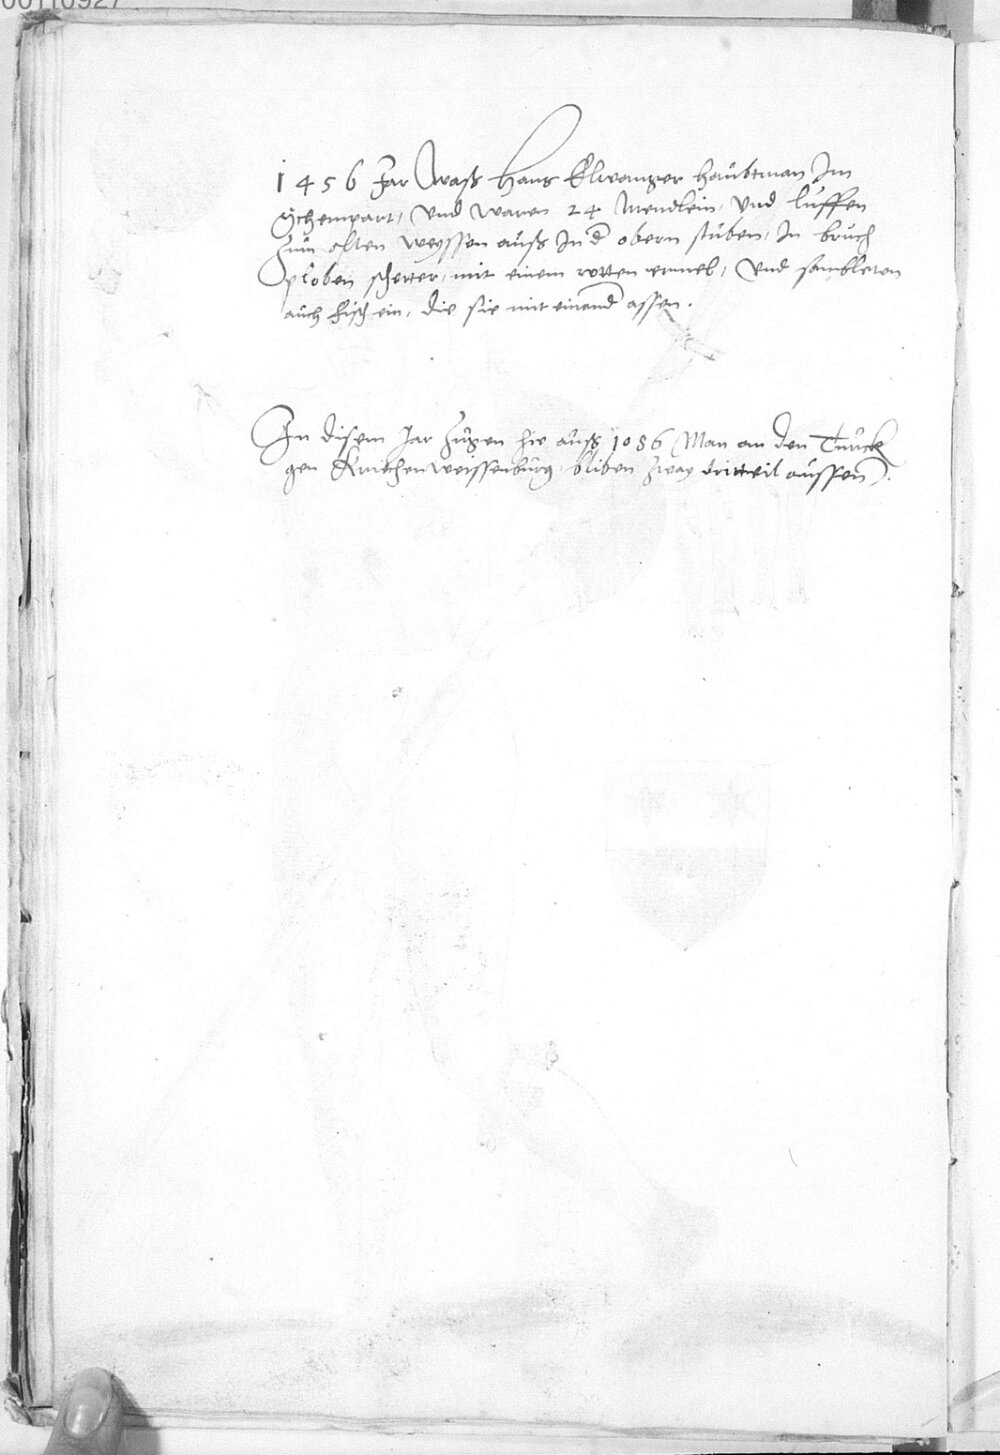 00110927
1456 Jar Waß Hans Elwanger haubtman Im
Schempart, Vnd waren 24 Mendlein, Vnd luffen
Zum alten Weyssen auß In d obern stuben, In bruch
ploben schetter, mit einem rotten ermel, Vnd sambleten
auch fisch ein, die sie mit einand assen.
In disem Jar Zugen hie auß 1056 Man an den Turck
gen Kriechenweissenburg, bliben Zway dritteil aussen.